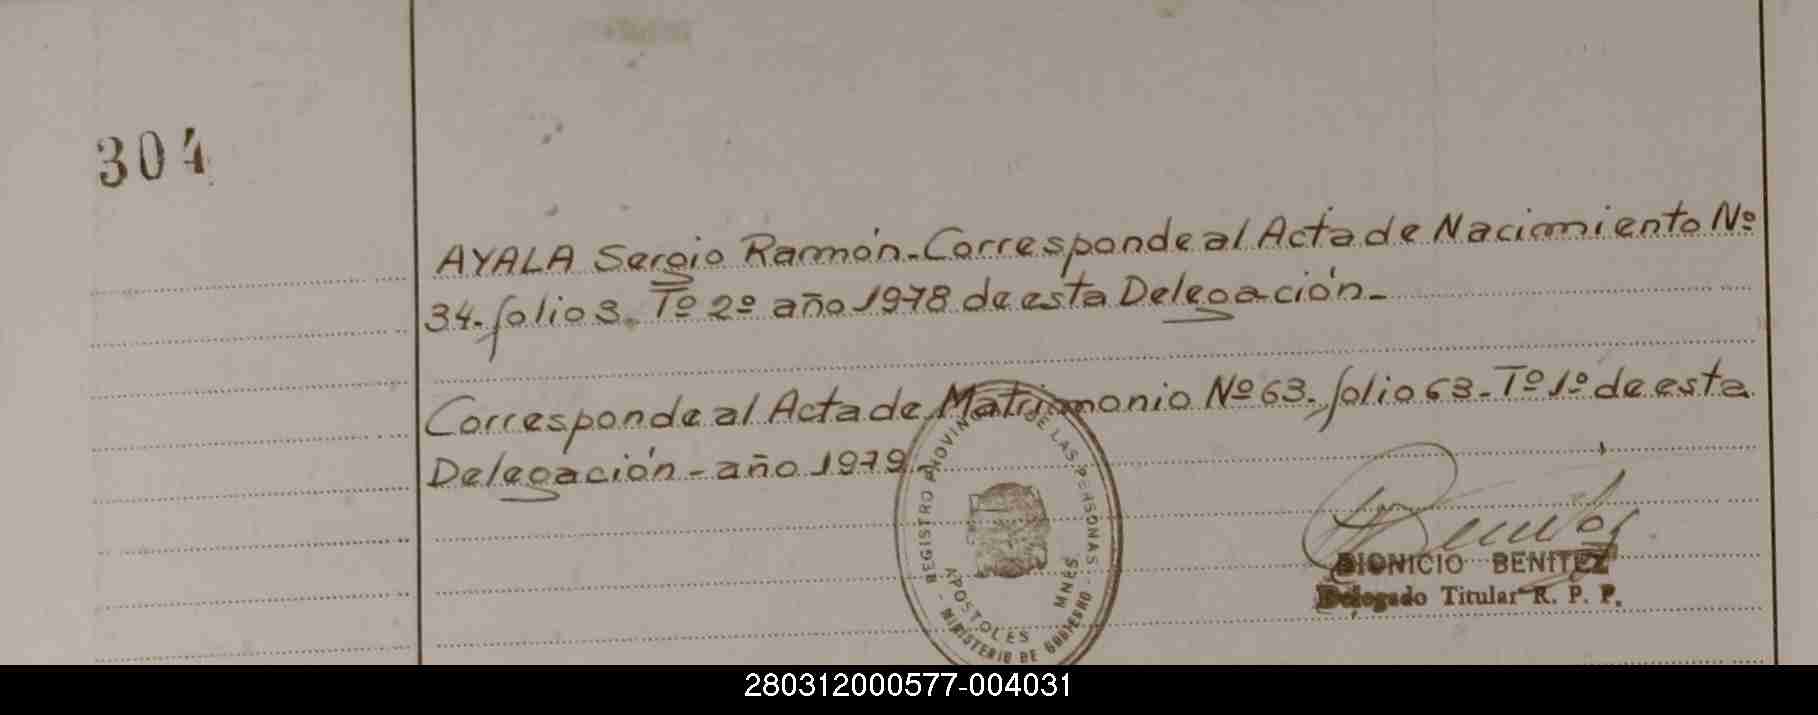 304
AYALA Sergio Ramón.-Corresponde al Acta de Nacimiento Nº
34.folio 3. Tº 2º año 1978 de esta Delegación.-
Corresponde al Acta de Matrimonio Nº 63. folio 63.-Tº 1º de esta
Delegación-año 1979.-
REGISTRO PROVINCIAL DE LAS PERSONAS - MINISTERIO DE GOBIERNO -
APOSTOLES MNES
DIONICIO BENITEZ
Delegado Titular R. P. P.
280312000577-004031